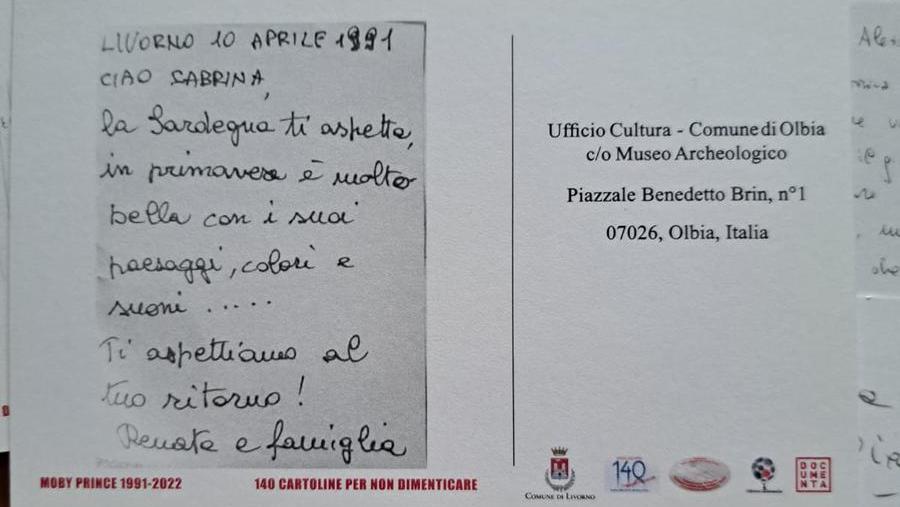 LIVORNO 10 APRILE 1991
CIAO SABRINA,
la Sardegna ti aspetta,
in primavera è molto
bella con i suoi
paesaggi, colori e
suoni .....
Ti aspettiamo al
tuo ritorno!
Renata e famiglia
MOBY PRINCE 1991-2022
140 CARTOLINE PER NON DIMENTICARE
Ufficio Cultura - Comune di Olbia
c/o Museo Archeologico
Piazzale Benedetto Brin, n°1
07026, Olbia, Italia
COMUNE DI LIVORNO
140
DOC
UME
NTA